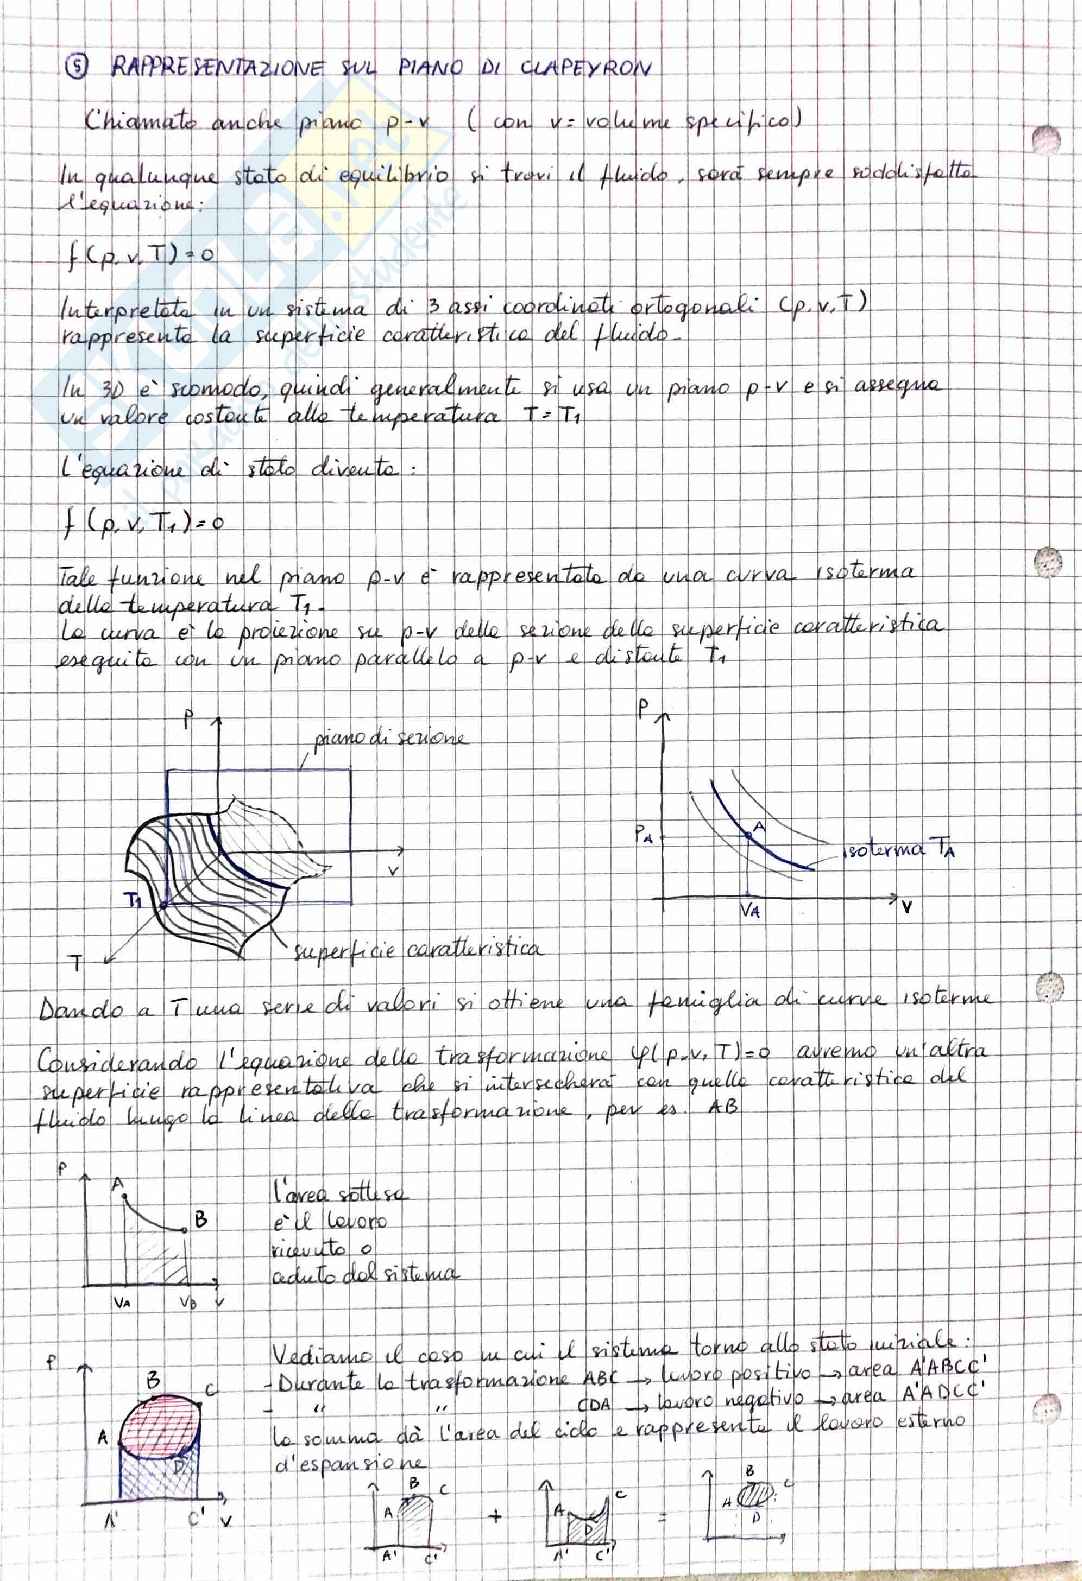 ⑤ RAPPRESENTAZIONE SUL PIANO DI CLAPEYRON
Chiamato anche piano p-v (con v= volume specifico)
In qualunque stato di equilibrio si trovi il fluido, sarà sempre soddisfatta
l'equazione:
f(p,v,T)=0
Interpretata in un sistema di 3 assi coordinati ortogonali (p,v,T)
rappresenta la superficie caratteristica del fluido.
In 3D è scomodo, quindi generalmente si usa un piano p-v e si assegna
un valore costante alla temperatura T=T1
L'equazione di stato diventa:
f(p,v,T1)=0
Tale funzione nel piano p-v è rappresentata da una curva isoterma
della temperatura T1.
La curva è la proiezione su p-v della sezione della superficie caratteristica
eseguita con un piano parallelo a p-v e distante T1
P
piano di sezione
v
T1
T
superficie caratteristica
P
PA
A
isoterma TA
VA
v
Dando a T una serie di valori si ottiene una famiglia di curve isoterme
Considerando l'equazione della trasformazione φ(p,v,T)=0 avremo un'altra
superficie rappresentativa che si intersecherà con quella caratteristica del
fluido lungo la linea della trasformazione, per es. AB
P
A
B
VA
VB
v
l'area sottesa
è il lavoro
ricevuto o
ceduto dal sistema
Vediamo il caso in cui il sistema torna allo stato iniziale:
- Durante la trasformazione ABC → lavoro positivo → area A'ABCC'
- " " CDA → lavoro negativo → area A'ADCC'
La somma dà l'area del ciclo e rappresenta il lavoro esterno
d'espansione
P
B
C
A
D
A'
C'
v
B
C
A
A'
C'
+
A
C
D
A'
C'
=
B
C
A
D